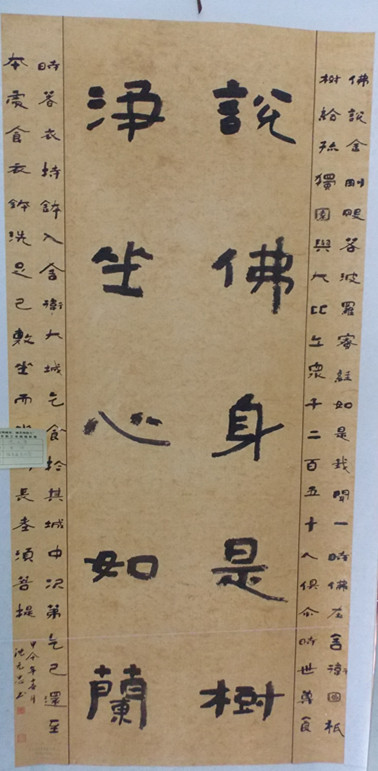 佛說金剛般若波羅蜜經如是我聞一時佛在舍衛國祇
樹給孤獨園與大比丘眾千二百五十人俱尒時世尊食
說佛身是樹
浄坐心如蘭
時著衣持鉢入舍衛大城乞食於其城中次第乞已還至
本處食衣鉢洗足已敷坐而坐長老須菩提
甲午年春月